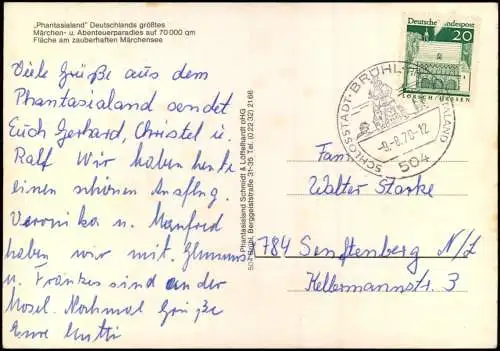 „Phantasialand" Deutschlands größtes
Märchen- u. Abenteuerparadies auf 70 000 qm
Fläche am zauberhaften Märchensee
Viele Grüße aus dem
Phantasialand sendet
Euch Gerhard, Christel u.
Ralf Wir haben heute
einen schönen Ausflug.
Veronika u. Manfred
haben wir mit.
u. Frankes sind an der
Mosel. Nochmal Grüße
Eure Mutti
Phantasialand Schmidt & Löffelhardt oHG
504 Brühl, Berggeiststraße 31-35 Tel. (0 22 32) 21 66
Deutsche Bundespost
20
LORSCH/HESSEN
SCHLOSSSTADT · BRÜHL
-9.-8.70-12
504
Fam.
Walter Starke
784 Senftenberg N/L
Kellermannstr. 3